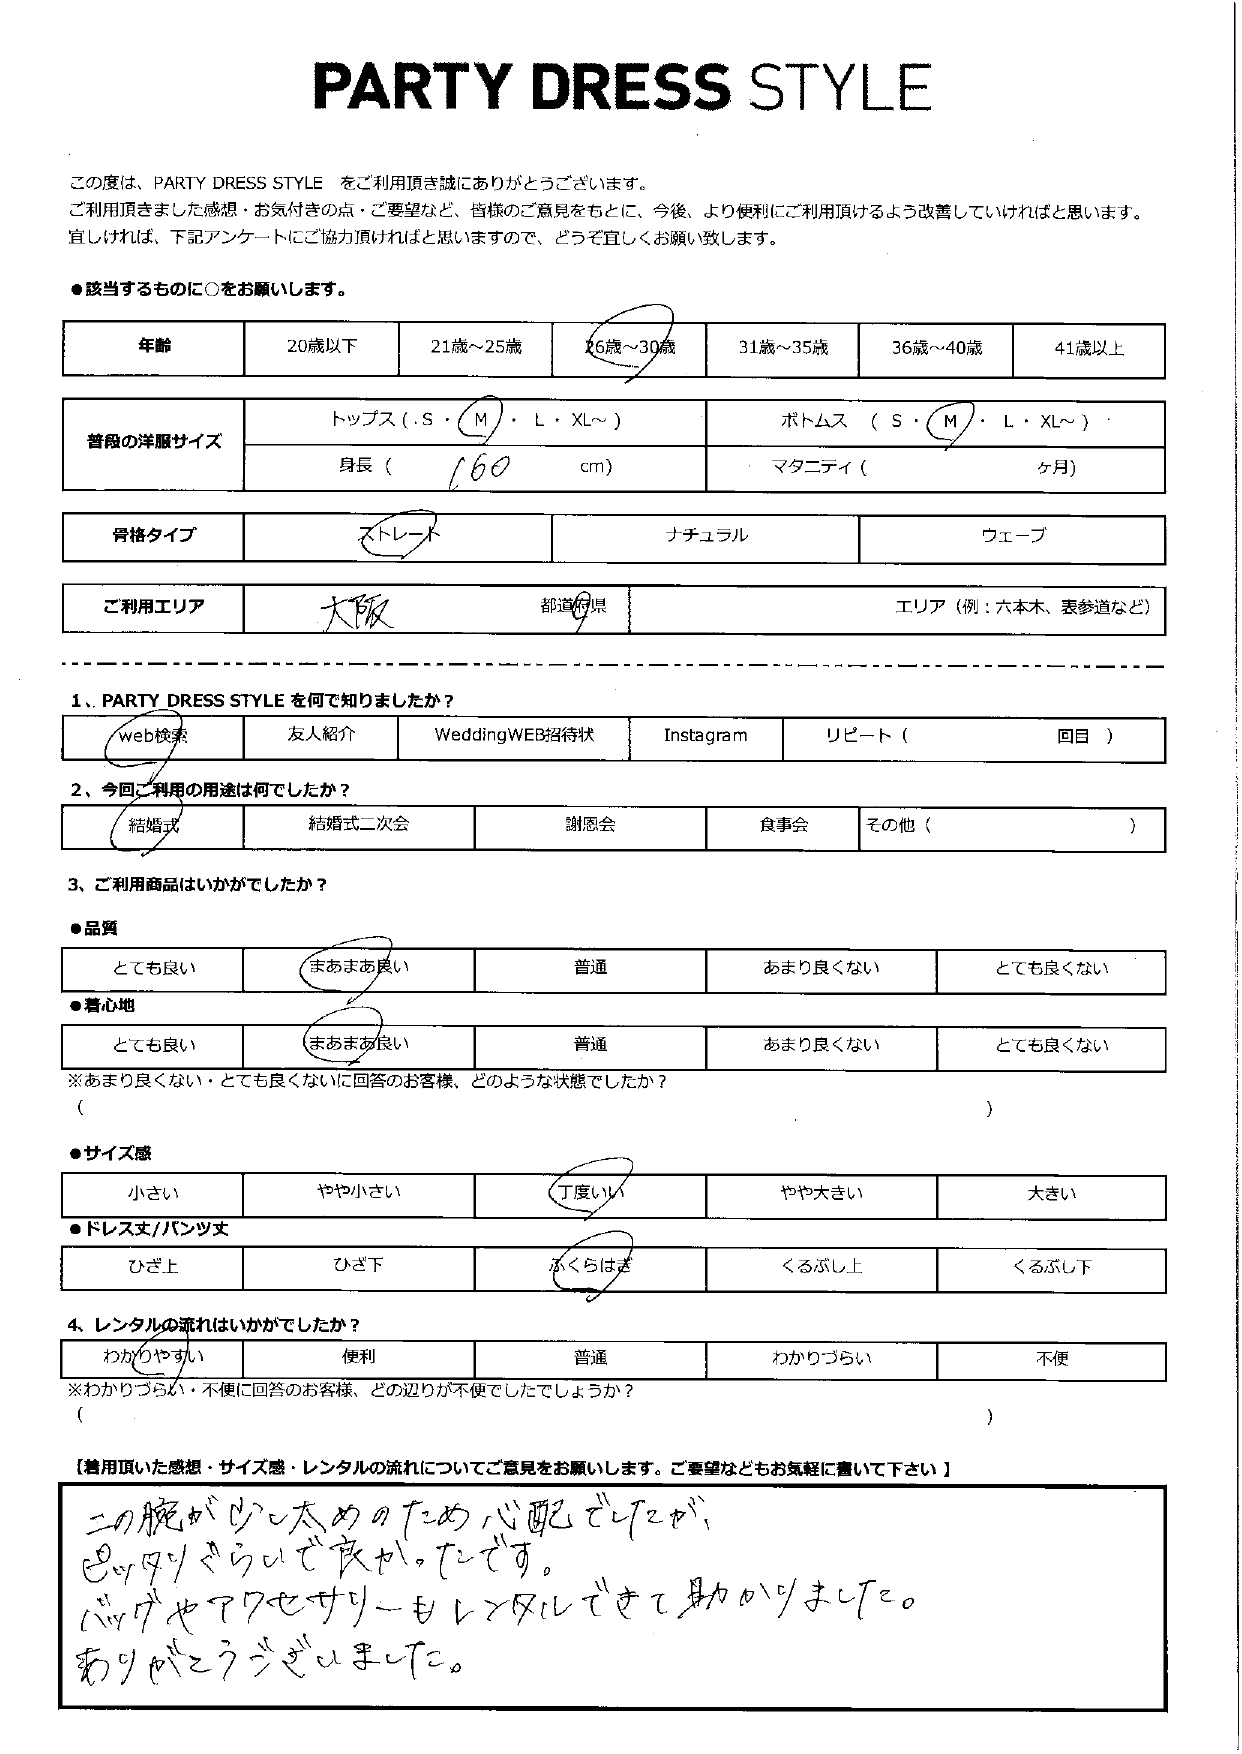 PARTY DRESS STYLE
この度は、PARTY DRESS STYLE　をご利用頂き誠にありがとうございます。
ご利用頂きました感想・お気付きの点・ご要望など、皆様のご意見をもとに、今後、より便利にご利用頂けるよう改善していければと思います。
宜しければ、下記アンケートにご協力頂ければと思いますので、どうぞ宜しくお願い致します。
●該当するものに○をお願いします。
年齢 20歳以下 21歳～25歳 26歳～30歳 31歳～35歳 36歳～40歳 41歳以上
普段の洋服サイズ トップス ( S ・ M ・ L ・ XL～ ) ボトムス ( S ・ M ・ L ・ XL～ )
身長 ( 160 cm) マタニティ ( ヶ月)
骨格タイプ ストレート ナチュラル ウェーブ
ご利用エリア 大阪 都道府県 エリア（例：六本木、表参道など）
1、PARTY DRESS STYLE を何で知りましたか？
web検索 友人紹介 WeddingWEB招待状 Instagram リピート ( 回目 )
2、今回ご利用の用途は何でしたか？
結婚式 結婚式二次会 謝恩会 食事会 その他 ( )
3、ご利用商品はいかがでしたか？
●品質
とても良い まあまあ良い 普通 あまり良くない とても良くない
●着心地
とても良い まあまあ良い 普通 あまり良くない とても良くない
※あまり良くない・とても良くないに回答のお客様、どのような状態でしたか？
( )
●サイズ感
小さい やや小さい 丁度いい やや大きい 大きい
●ドレス丈/パンツ丈
ひざ上 ひざ下 ふくらはぎ くるぶし上 くるぶし下
4、レンタルの流れはいかがでしたか？
わかりやすい 便利 普通 わかりづらい 不便
※わかりづらい・不便に回答のお客様、どの辺りが不便でしたでしょうか？
( )
【着用頂いた感想・サイズ感・レンタルの流れについてご意見をお願いします。ご要望などもお気軽に書いて下さい 】
二の腕が少し太めのため心配でしたが、
ピッタリぐらいで良かったです。
バッグやアクセサリーもレンタルできて助かりました。
ありがとうございました。